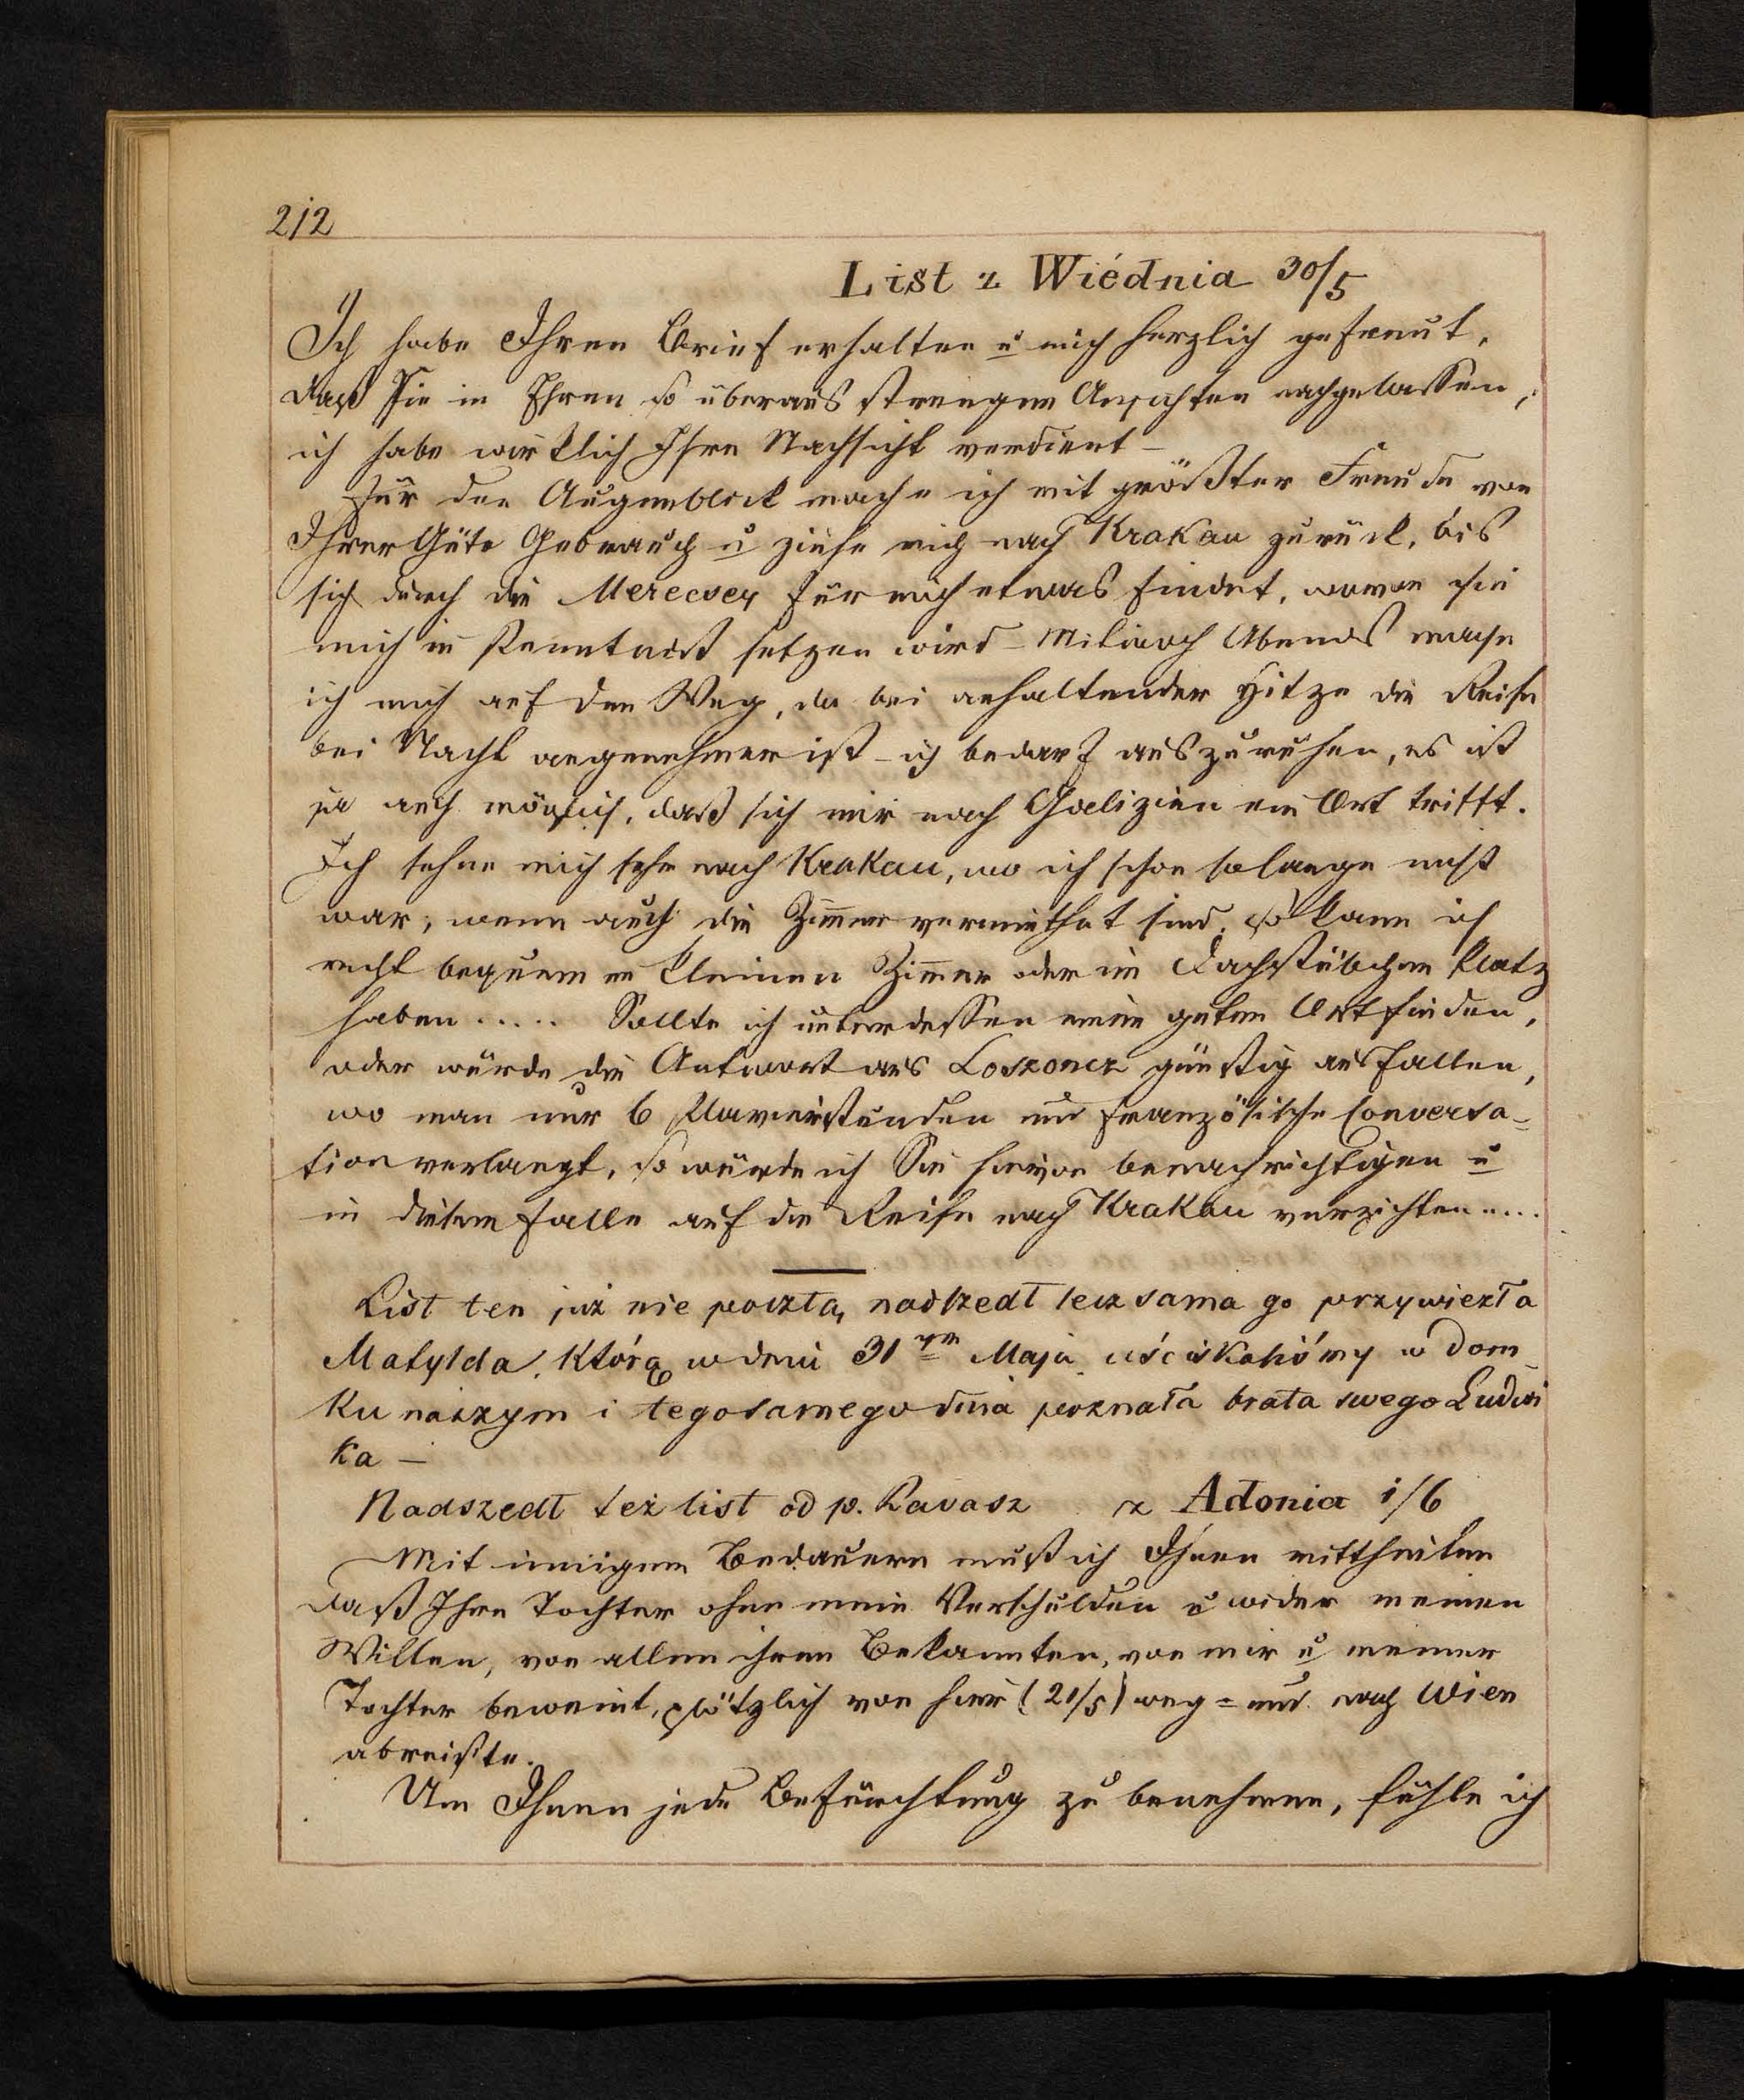 212
List z Wiédnia 30/5
Ich habe Ihren Brief erhalten u mich herzlich gefreut,
daß Sie in Ihren so überaus strengen Ansichten nachgelassen,
ich habe wirklich Ihre Nachsicht verdient –
Für den Augenblick mache ich mit größter Freude von
Ihrer Güte Gebrauch u ziehe mich nach Krakau zurück, bis
sich durch die Merecsey für mich etwas findet, wovon sie
mich in Kenntniß setzen wird – Mitwoch Abends mache
ich mich auf den Weg, da bei anhaltender Hitze die Reise
bei Nacht angenehmer ist – ich bedarf auszuruhen, es ist
ja auch möglich, daß sich mir nach Galizien ein Ort trifft.
Ich sehne mich sehr nach Krakau, wo ich schon solange nicht
war; wenn auch die Zimmer vermiethet sind, so kann ich
recht bequem im kleinen Zimmer oder im Dachstübchen Platz
haben..... Sollte ich unterdessen einen guten Ort finden,
oder würde die Antwort aus Loszoncz günstig ausfallen,
wo man nur 6 Klavierstunden und französische Conversa=
tion verlangt, so würde ich Sie hievon benachrichtigen u
in diesem Falle auf die Reise nach Krakau verzichten....
List ten już nie pocztą nadszedł lecz sama go przywiezła
Matylda, którą w dniu 31ym Maja uściskaliśmy w dom
ku naszym i tegosamego dnia poznała brata swego Ludwi
ka –
Nadszedł też list od p. Ravasz z Adonia 1/6
Mit innigem Bedauern muß ich Ihnen mittheilen
daß Ihre Tochter ohne mein Verschulden u wider meinen
Willen, von allen ihren Bekannten, von mir u meiner
Tochter beweint, plötzlich von hier (21/5) weg= und nach Wien
abreiste.
Um Ihnen jede Befürchtung zu benehmen, fühle ich